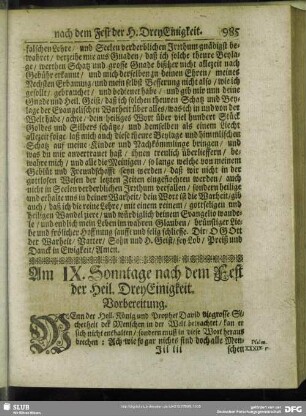 nach dem Fest der H. DreyEinigkeit. 985
falschen Lehre/ und Seelen verderblichen Irrthum gnädigst be-
wahret/ verzeihe mir aus Gnaden/ daß ich solche theure Beyla-
ge/ werthen Schatz und grosse Gnade bißher nicht allezeit nach
Gebühr erkannt/ und mich derselben zu deinen Ehren/ meines
Nechsten Erbauung/ und mein selbst Besserung nicht also/ wie ich
gesollet/ gebrauchet/ und bedienet habe/ und gib mir nun deine
Gnade und Heil. Geist/ daß ich solchen theuren Schatz und Bey-
lage der Evangelischen Warheit über alles/ was ich in und von der
Welt habe/ achte/ dein heiliges Wort über viel hundert Stück
Goldes und Silbers schätze/ und demselben als einem Licht
allezeit folge/ laß mich auch diese theure Beylage und himmlischen
Schatz auf meine Kinder und Nachkömmlinge bringen/ und
was du mir anvertrauet hast/ ihnen treulich überliefern/ be-
wahre mich/ und alle die Meinigen/ so lange welche von meinem
Geblüt und Freundschafft seyn werden/ daß wir nicht in der
gottlosen Welt der letzten Zeiten eingeflochten werden/ auch
nicht in Seelen verderblichen Irrthum verfallen/ sondern heilige
und erhalte uns in deiner Warheit/ dein Wort ist die Warheit/ gib
auch/ daß ich die reine Lehre/ mit einem reinem/ gottseligen und
heiligen Wandel ziere/ und würdiglich deinem Evangelio wande-
le/ und endlich mein Leben im wahren Glauben/ brünstiger Lie-
be und frölicher Hoffnung sanfft und selig schliesse. Dir GOtt
der Warheit/ Vatter/ Sohn und H. Geist/ sey Lob/ Preiß und
Danck in Ewigkeit/ Amen.
Am IX. Sonntage nach dem Fest
der Heil. DreyEinigkeit.
Vorbereitung.
WEnn der Heil. König und Prophet David die grosse Si-
cherheit der Menschen in der Welt betrachtet/ kan er
sich nicht enthalten/ sondern muß in diese Wort heraus
brechen: Ach wie so gar nichts sind doch alle Men- Psalm.
schen XXXIX.
SLUB